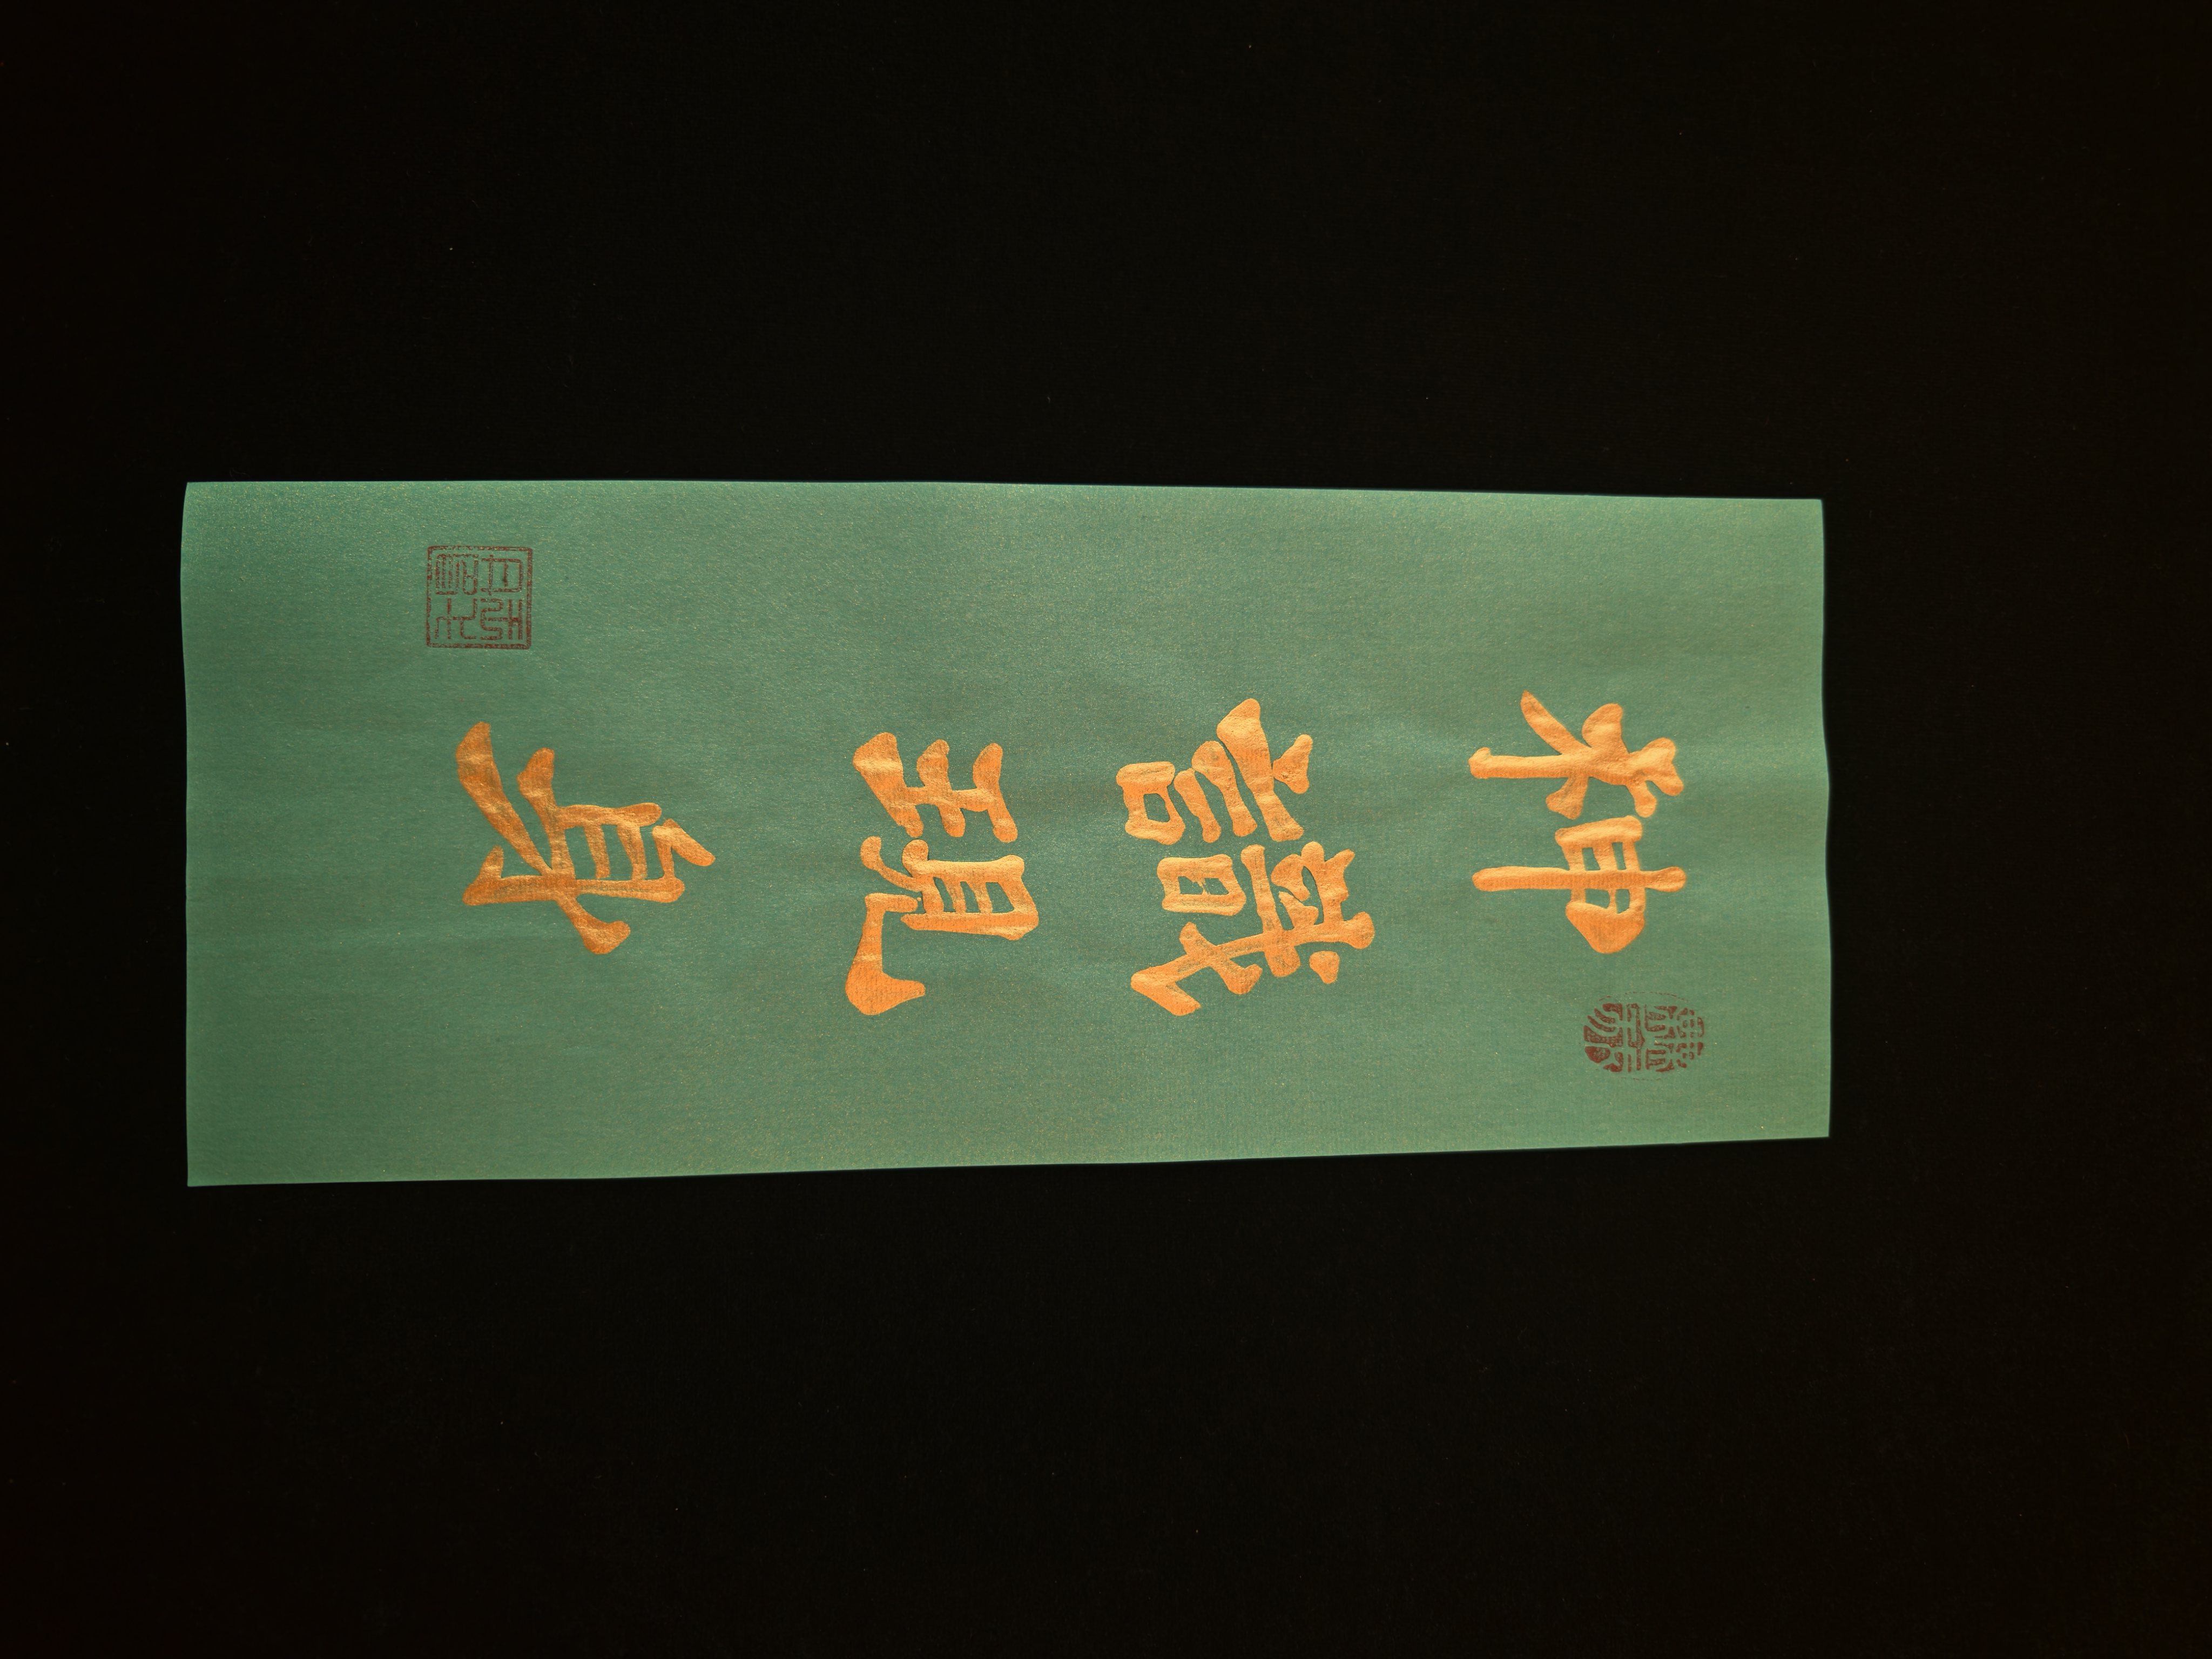 神識現身